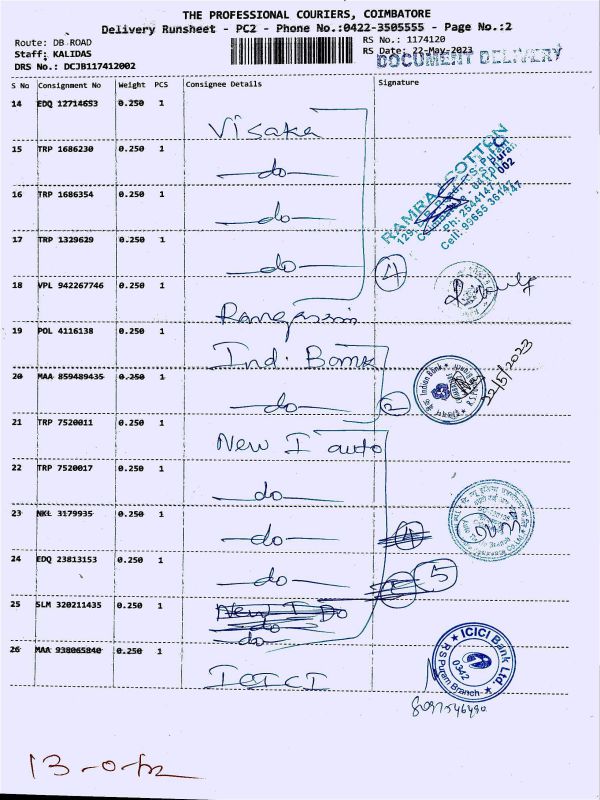 THE PROFESSIONAL COURIERS, COIMBATORE
Delivery Runsheet - PC2 - Phone No.:0422-3505555 - Page No.:2
Route: DB ROAD
RS No.: 1174120
Staff: KALIDAS
RS Date: 22-May-2023
DOCUMENT DELIVERY
DRS No.: DCJB117412002
S No Consignment No Weight PCS Consignee Details Signature
14 EDQ 12714653 0.250 1 Visaka
15 TRP 1686230 0.250 1 do
16 TRP 1686354 0.250 1 do
RAMRAJ COTTON
17 TRP 1329629 0.250 1 do
4
18 VPL 942267746 0.250 1
19 POL 4116138 0.250 1 Ind. Bank
Indian Bank
22/5/2023
20 MAA 859489435 0.250 1 do
2
21 TRP 7520011 0.250 1 New I auto
22 TRP 7520017 0.250 1 do
23 NKL 3179935 0.250 1 do
24 EDQ 23813153 0.250 1 do
5
25 SLM 320211435 0.250 1
do
26 MAA 938065840 0.250 1 ICICI
ICICI Bank Ltd.
0342
RS Puram Branch